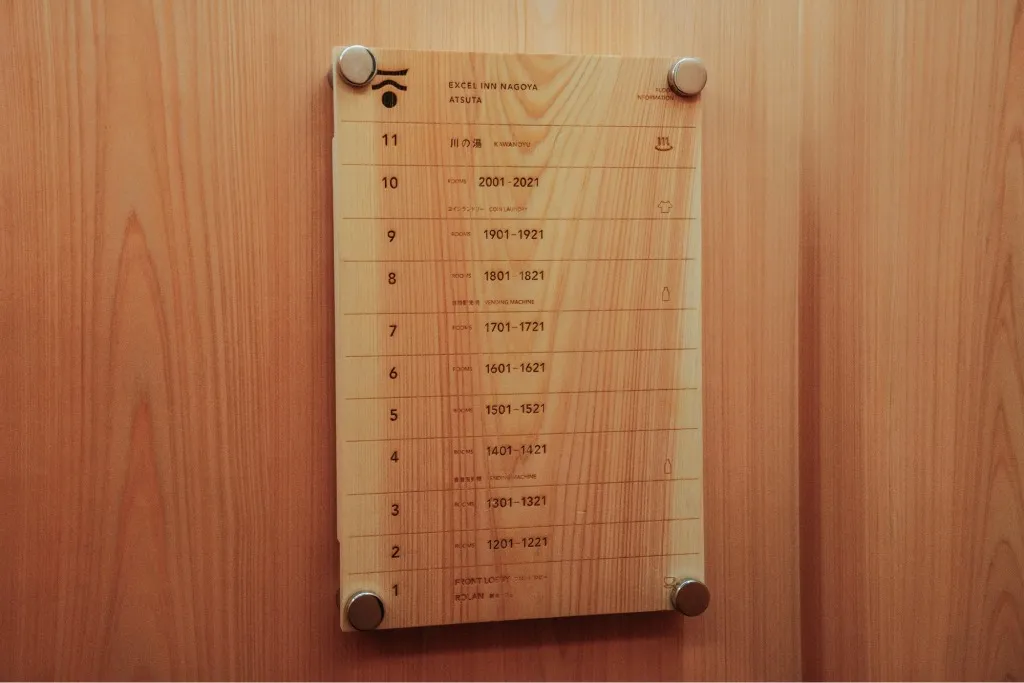 EXCEL INN NAGOYA
ATSUTA
FLOOR
INFORMATION
11 川の湯 KAWANOYU
10 ROOMS 2001-2021
コインランドリー COIN LAUNDRY
9 ROOMS 1901-1921
8 ROOMS 1801-1821
VENDING MACHINE
7 ROOMS 1701-1721
6 ROOMS 1601-1621
5 ROOMS 1501-1521
4 ROOMS 1401-1421
VENDING MACHINE
3 ROOMS 1301-1321
2 ROOMS 1201-1221
1 FRONT LOBBY